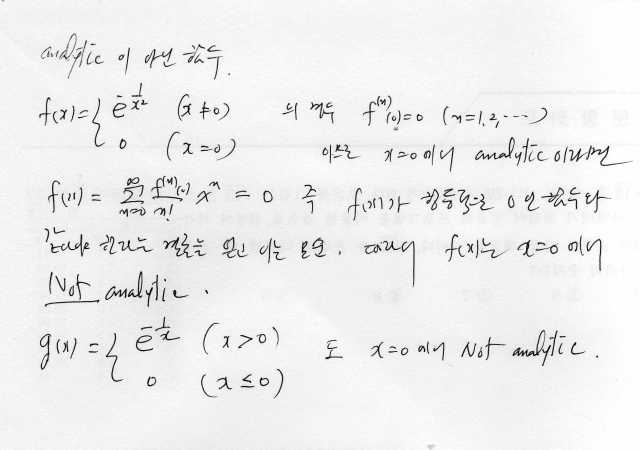 analytic 이 아닌 함수.
f(x) = { e^{-1/x²} (x≠0) 의 경우 f^{(n)}(0)=0 (n=1,2,⋯)
0 (x=0) 이므로 x=0에서 analytic 이라면
f(x) = ∑_{n=0}^{∞} f^{(n)}(0)/n! xⁿ = 0 즉 f(x)가 항등적으로 0인 함수다
결론을 얻고 이는 모순. 따라서 f(x)는 x=0에서
Not analytic.
g(x) = { e^{-1/x} (x>0) 도 x=0에서 Not analytic.
0 (x≤0)